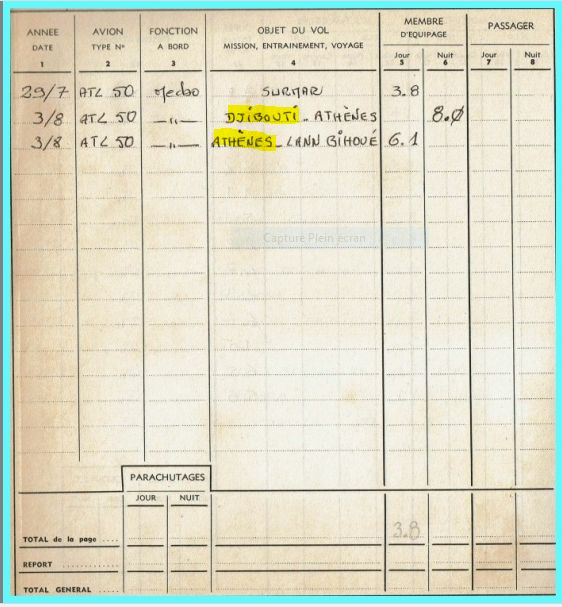 ANNEE AVION FONCTION OBJET DU VOL MEMBRE D'EQUIPAGE PASSAGER
DATE TYPE N° A BORD MISSION, ENTRAINEMENT, VOYAGE Jour Nuit Jour Nuit
1 2 3 4 5 6 7 8
29/7 ATL 50 Mecbo SURMAR 3.8
3/8 ATL 50 —"— DJIBOUTI - ATHÈNES 8.0
3/8 ATL 50 —"— ATHÈNES - LANN BIHOUÉ 6.1
Capture Plein écran
PARACHUTAGES
JOUR NUIT
TOTAL de la page .... 3.8
REPORT
TOTAL GENERAL